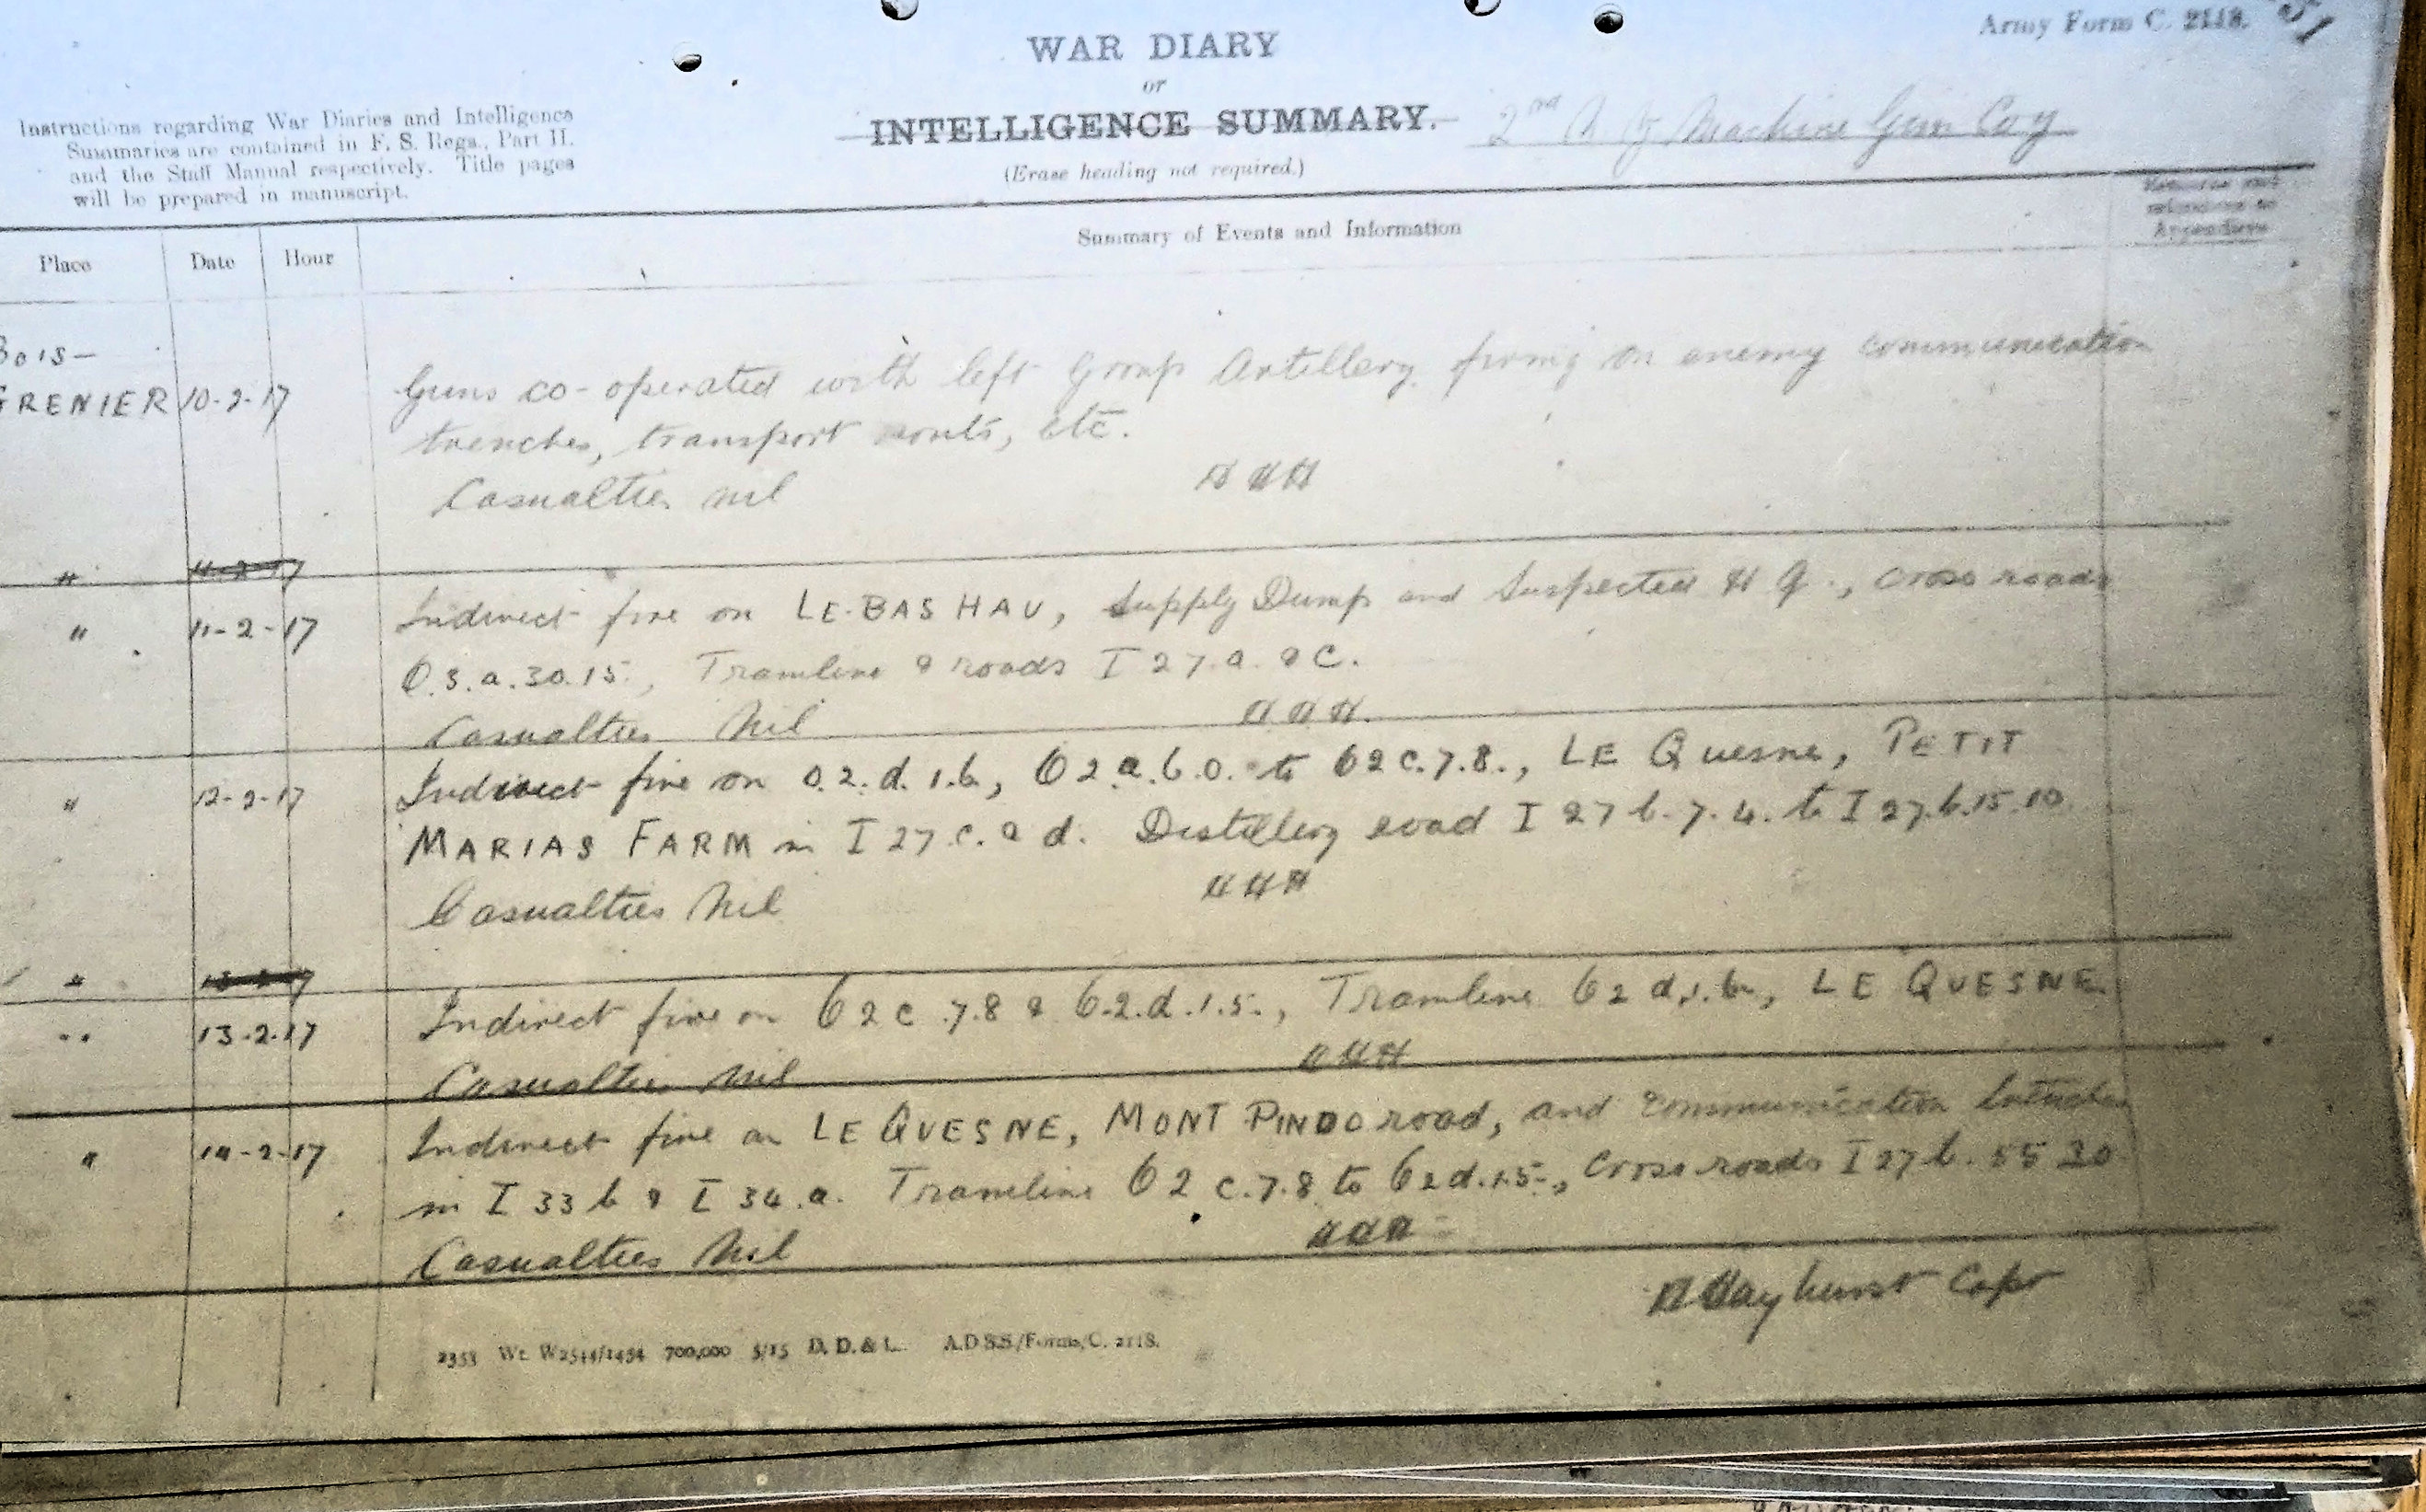 Army Form C. 2118.
WAR DIARY
or
INTELLIGENCE SUMMARY.
(Erase heading not required.)
2nd N Z Machine Gun Coy
Instructions regarding War Diaries and Intelligence
Summaries are contained in F. S. Regs., Part II.
and the Staff Manual respectively. Title pages
will be prepared in manuscript.
Remarks and
references to
Appendices
Place Date Hour Summary of Events and Information
BOIS-
GRENIER 10-2-17 Guns co-operated with left Group Artillery firing on enemy communication
trenches, transport routes, etc.
Casualties nil
" 11-2-17
" 11-2-17 Indirect fire on LE-BAS HAU, Supply Dump and Suspected H Q., cross roads
O.3.a.30.15., Tramline & roads I 27.a. & C.
Casualties Nil
" 12-2-17 Indirect fire on O.2.d.1.6, O2.a.6.0. to O2c.7.8., LE Quesne, PETIT
MARIAS FARM in I 27.c. & d. Distillery road I 27 b.7.4. to I 27.b.15.10
Casualties Nil
" 13-2-17
" 13-2-17 Indirect fire on O2c.7.8 & O.2.d.1.5., Tramline O2 d.1.6, LE QUESNE.
Casualties nil
" 14-2-17 Indirect fire on LE QUESNE, MONT PINDO road, and communication trenches
in I 33 b & I 34.a. Tramline O2 c.7.8 to O2d.1.5., Cross roads I 27 b. 55 30
Casualties Nil
Hayhurst Capt
2353 Wt. W2544/1454 700,000 5/15 D. D. & L. A.D.S.S./Forms/C. 2118.